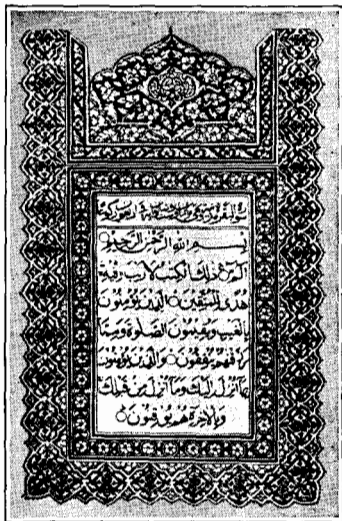 بسم الله الرحمن الرحيم
الم ذلك الكتب لا ريب فيه
هدى للمتقين الذين يؤمنون
بالغيب ويقيمون الصلوة ومما
رزقنهم ينفقون والذين يؤمنون
بما أنزل اليك وما أنزل من قبلك
وبالاخرة هم يوقنون